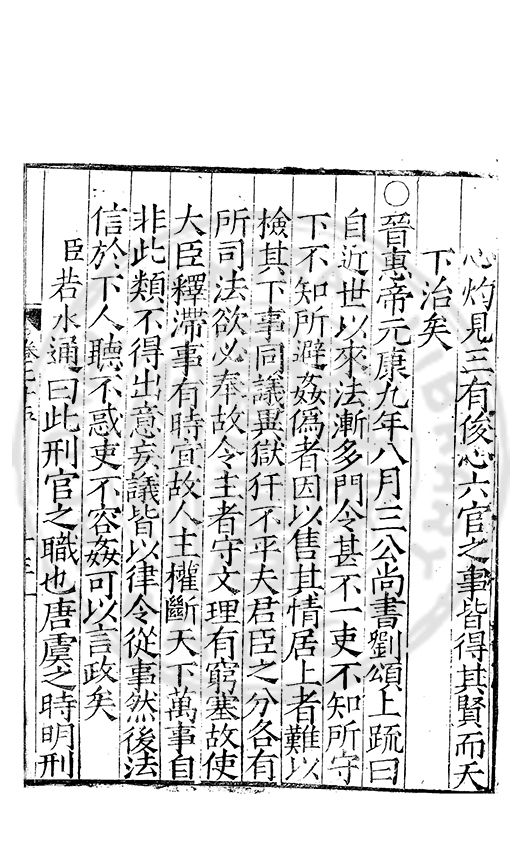 心灼見三有俊心六官之事皆得其賢而天
下治矣
○晉惠帝元康九年八月三公尚書劉頌上疏曰
自近世以來法漸多門令甚不一吏不知所守
下不知所避姦偽者因以售其情居上者難以
檢其下事同議異獄犴不平夫君臣之分各有
所司法欲必奉故令主者守文理有窮塞故使
大臣釋滯事有時宜故人主權斷天下萬事自
非此類不得出意妄議皆以律令從事然後法
信於下人聽不惑吏不容姦可以言政矣
臣若水通曰此刑官之職也唐虞之時明刑